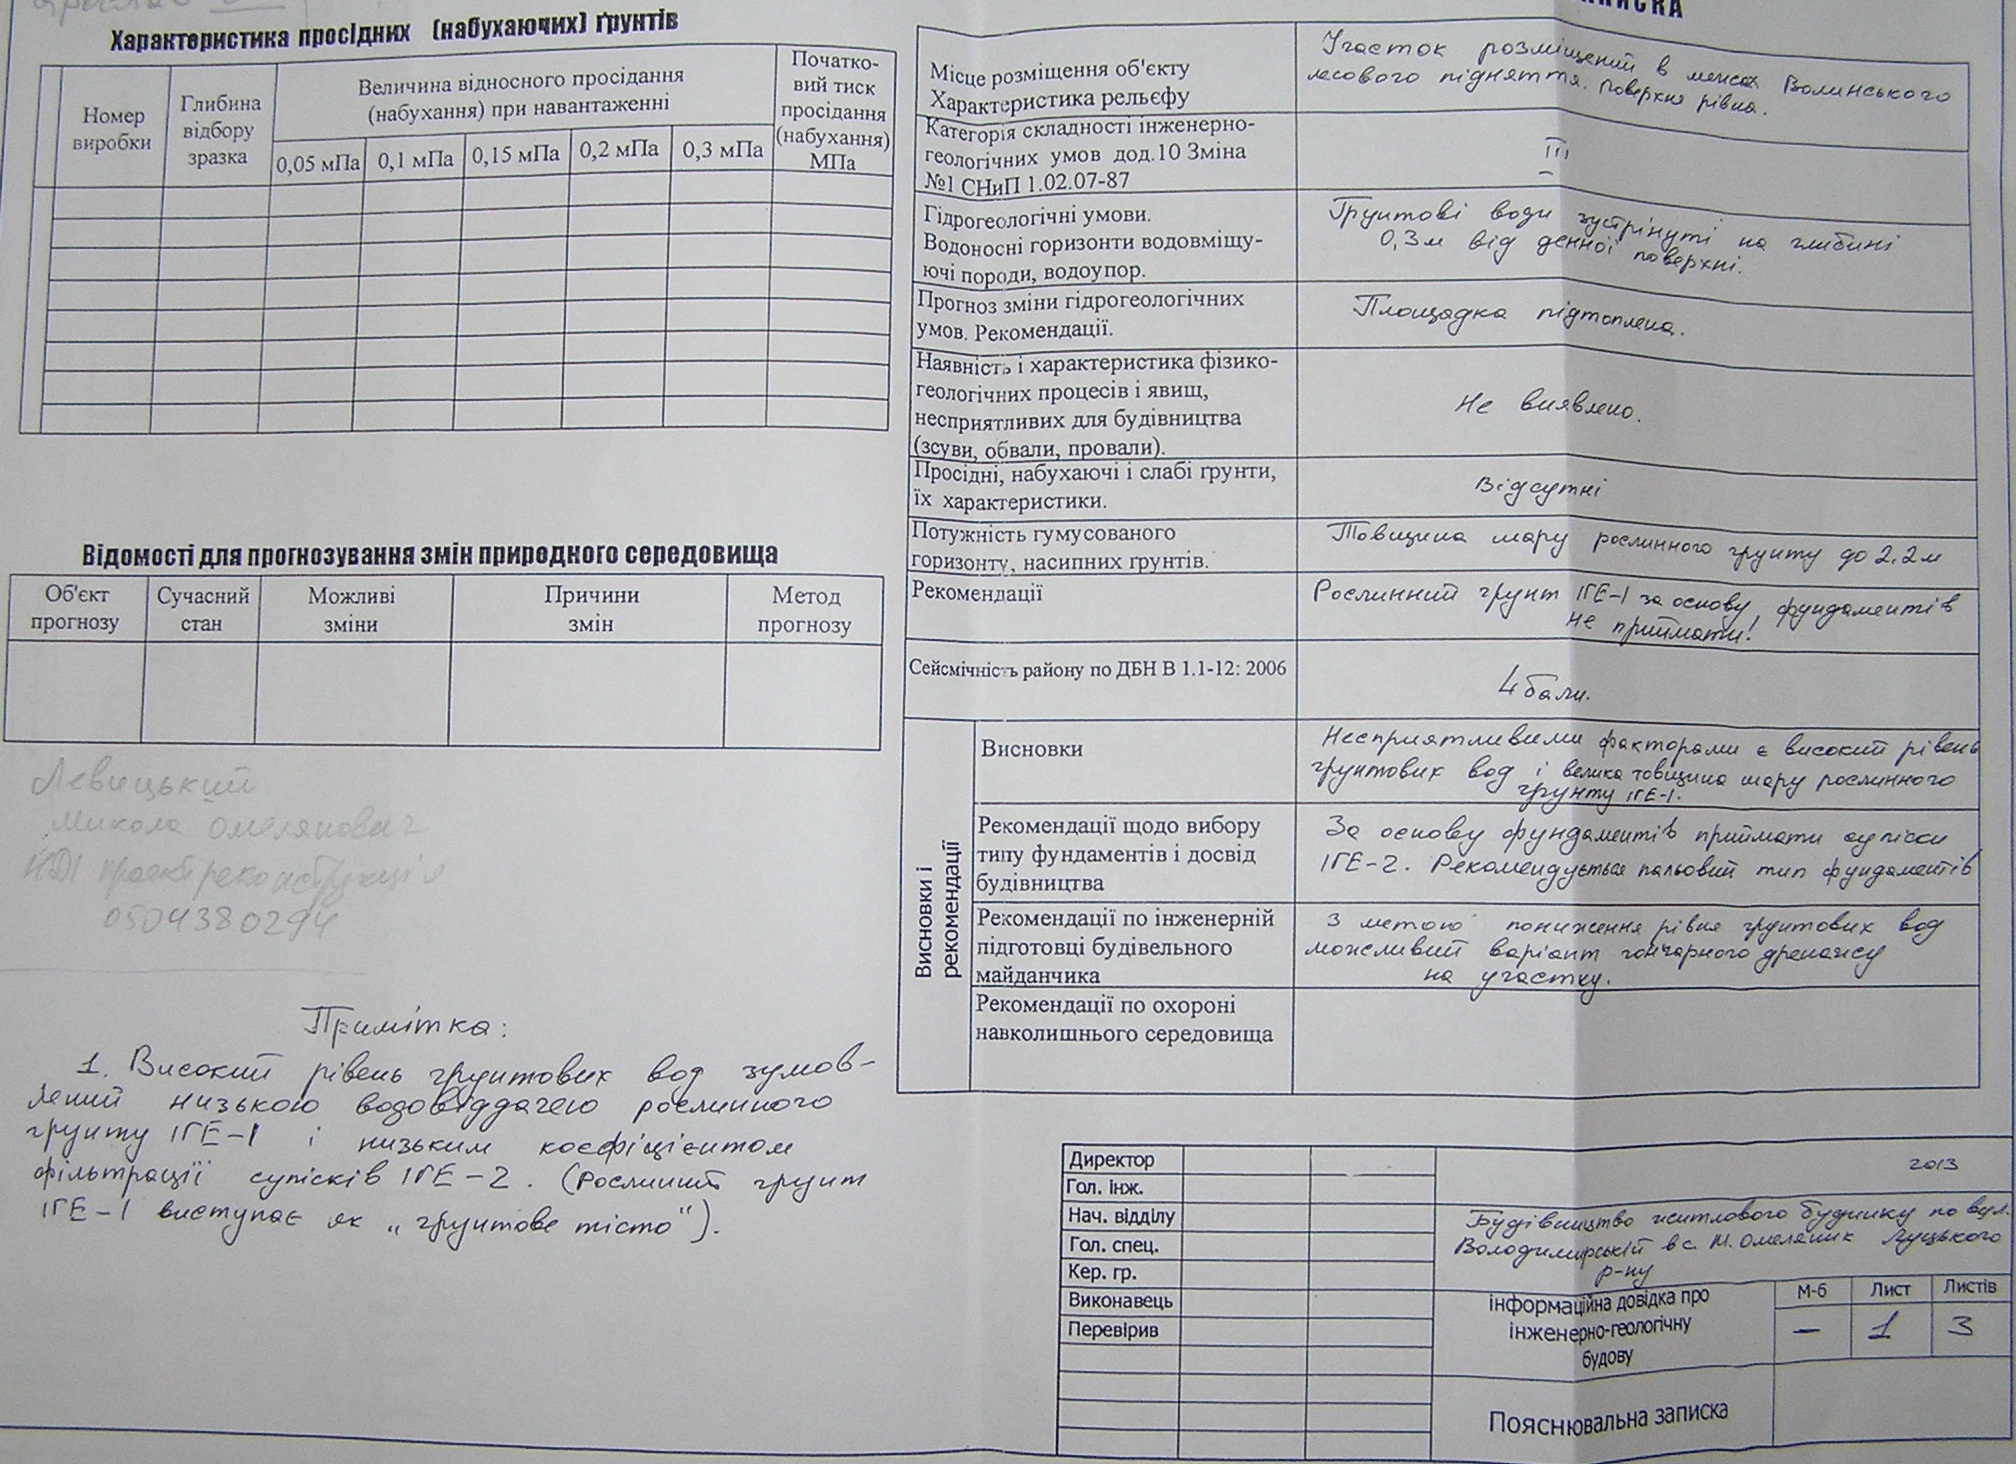 Характеристика просідних (набухаючих) ґрунтів
Номер
виробки
Глибина
відбору
зразка
Величина відносного просідання
(набухання) при навантаженні
0,05 мПа
0,1 мПа
0,15 мПа
0,2 мПа
0,3 мПа
Початко-
вий тиск
просідання
(набухання)
МПа
Відомості для прогнозування змін природного середовища
Об'єкт
прогнозу
Сучасний
стан
Можливі
зміни
Причини
змін
Метод
прогнозу
Левицький
Микола Омелянович
НДІ проектреконструкція
0504380294
Примітка:
1. Високий рівень грунтових вод зумов-
лений низькою водовіддачею рослинного
грунту ІГЕ-1 і низьким коефіцієнтом
фільтрації супісків ІГЕ-2. (Рослинний грунт
ІГЕ-1 виступає як „грунтове тісто").
Місце розміщення об'єкту
Характеристика рельєфу
Участок розміщений в межах Волинського
лесового підняття. Поверхня рівна.
Категорія складності інженерно-
геологічних умов дод.10 Зміна
№1 СНиП 1.02.07-87
III
Гідрогеологічні умови.
Водоносні горизонти водовміщу-
ючі породи, водоупор.
Грунтові води зустрінуті на глибині
0,3м від денної поверхні.
Прогноз зміни гідрогеологічних
умов. Рекомендації.
Площадка підтоплена.
Наявність і характеристика фізико-
геологічних процесів і явищ,
несприятливих для будівництва
(зсуви, обвали, провали).
Не виявлено.
Просідні, набухаючі і слабі ґрунти,
їх характеристики.
Відсутні
Потужність гумусованого
горизонту, насипних ґрунтів.
Товщина шару рослинного грунту до 2,2м
Рекомендації
Рослинний грунт ІГЕ-1 за основу фундаментів
не приймати!
Сейсмічність району по ДБН В 1.1-12: 2006
4 бали.
Висновки і
рекомендації
Висновки
Несприятливими факторами є високий рівень
грунтових вод і велика товщина шару рослинного
грунту ІГЕ-1.
Рекомендації щодо вибору
типу фундаментів і досвід
будівництва
За основу фундаментів приймати супіски
ІГЕ-2. Рекомендується пальовий тип фундаментів
Рекомендації по інженерній
підготовці будівельного
майданчика
З метою пониження рівня грунтових вод
можливий варіант гончарного дренажу
на участку.
Рекомендації по охороні
навколишнього середовища
Директор
Гол. інж.
Нач. відділу
Гол. спец.
Кер. гр.
Виконавець
Перевірив
2013
Будівництво житлового будинку по вул.
Володимирській в с. М. Омеляник Луцького
р-ну
інформаційна довідка про
інженерно-геологічну
будову
М-б
Лист
Листів
–
1
3
Пояснювальна записка